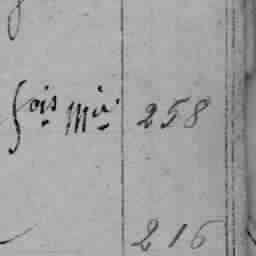 fois Mie. 258
216